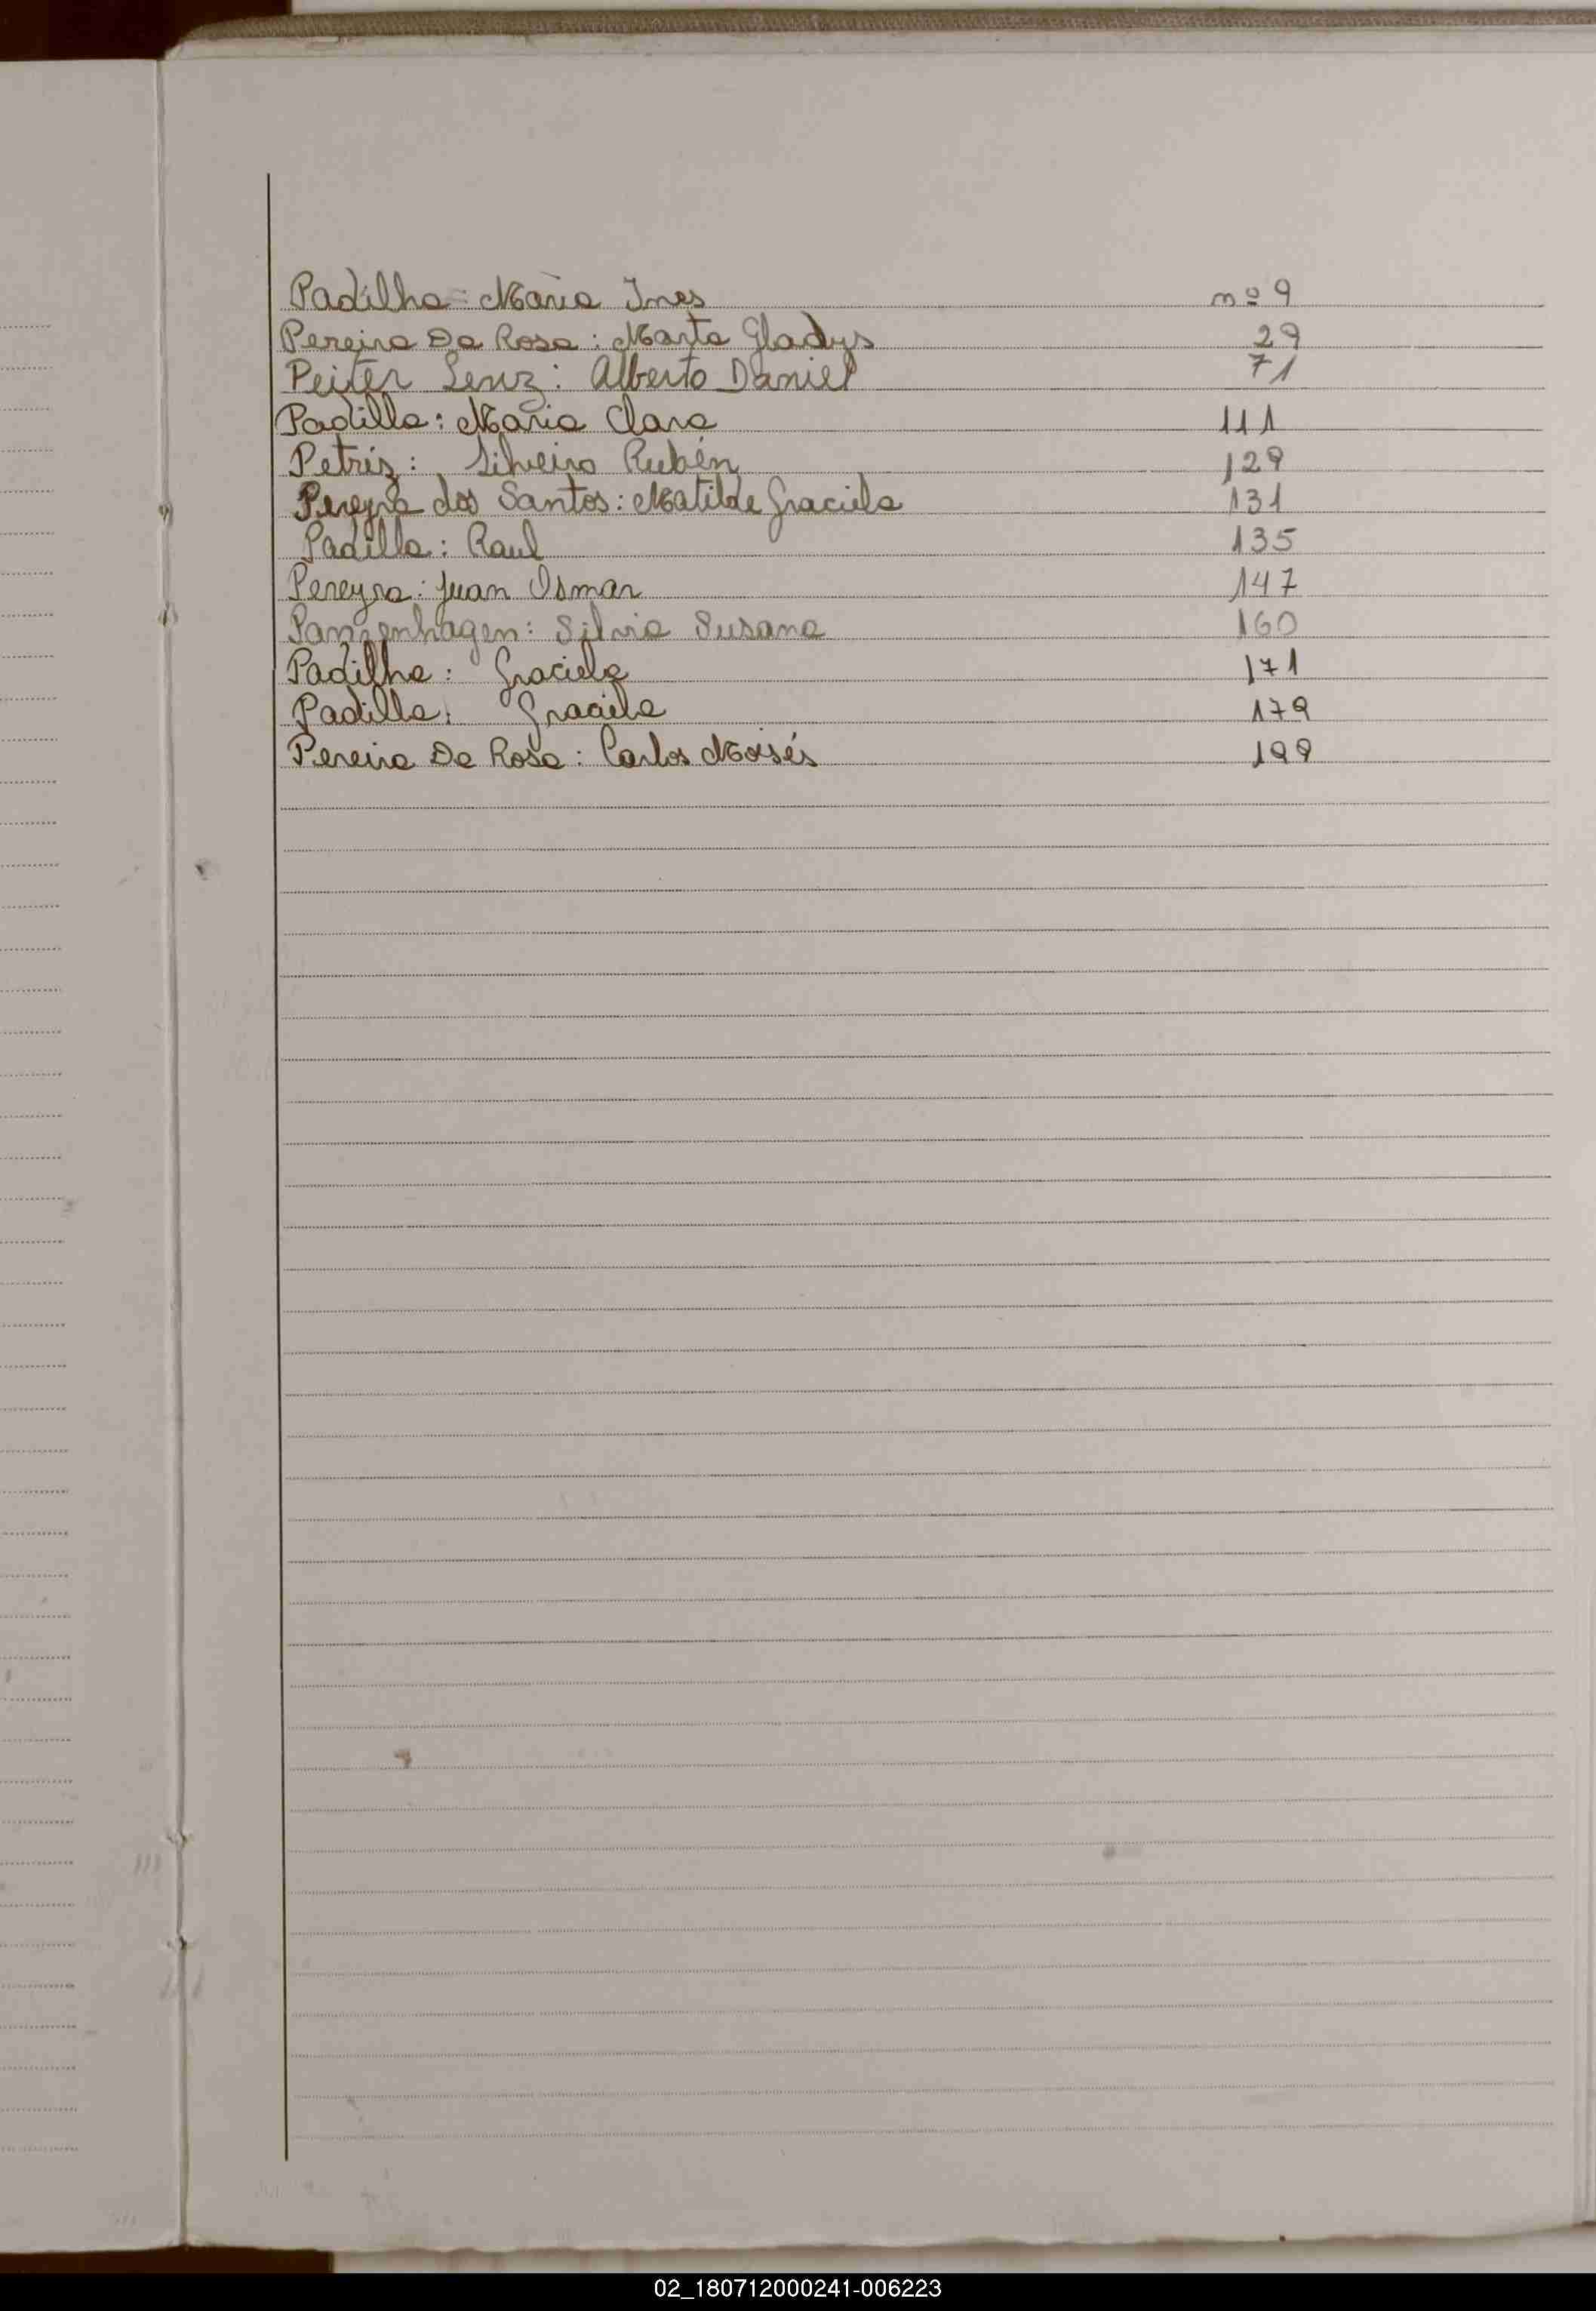 Padilha = Maria Ines nº 9
Pereira Da Rosa : Marta Gladys 29
Peiter Lenz : Alberto Daniel 71
Padilla : Maria Clara 111
Petriz : Silveiro Rubén 129
Pereyra dos Santos : Matilde Graciela 131
Padilla : Raul 135
Pereyra : Juan Osmar 147
Panzenhagen : Silvia Susana 160
Padilha : Graciela 171
Padilla : Graciela 179
Pereira Da Rosa : Carlos Moisés 199
02_180712000241-006223